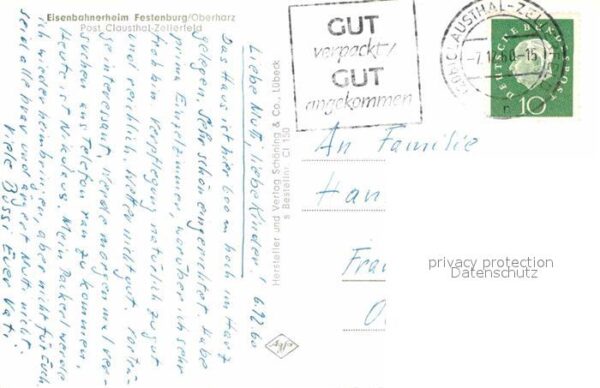 Eisenbahnerheim Festenburg/Oberharz
Post Clausthal-Zellerfeld
GUT
verpackt,
GUT
angekommen
CLAUSTHAL-ZELL
-7.12.60-15
DEUTSCHE BUNDESPOST
10
Liebe Mutti, liebe Kinder! 6.12.60
Das Haus ist hier 600 m hoch im Harz
gelegen. Sehr schön eingerichtet. Habe
prima Einzelzimmer, worüber ich sehr
froh bin. Verpflegung natürlich zu gut
und reichlich. Wetter nicht gut. Vorträ-
ge interessant. Werde morgen mal ver-
suchen ans Telefon ran zu kommen.
Heute ist Nikolaus. Mein Packerl werde
ich wieder heimbringen, aber nicht für Euch.
Seid alle brav und ärgert Mutti nicht.
Viele Bussi Euer Vati
Hersteller und Verlag Schöning & Co., Lübeck
s Bestellnr. Cl 150
An Familie
Han
Fra
O
privacy protection
Datenschutz